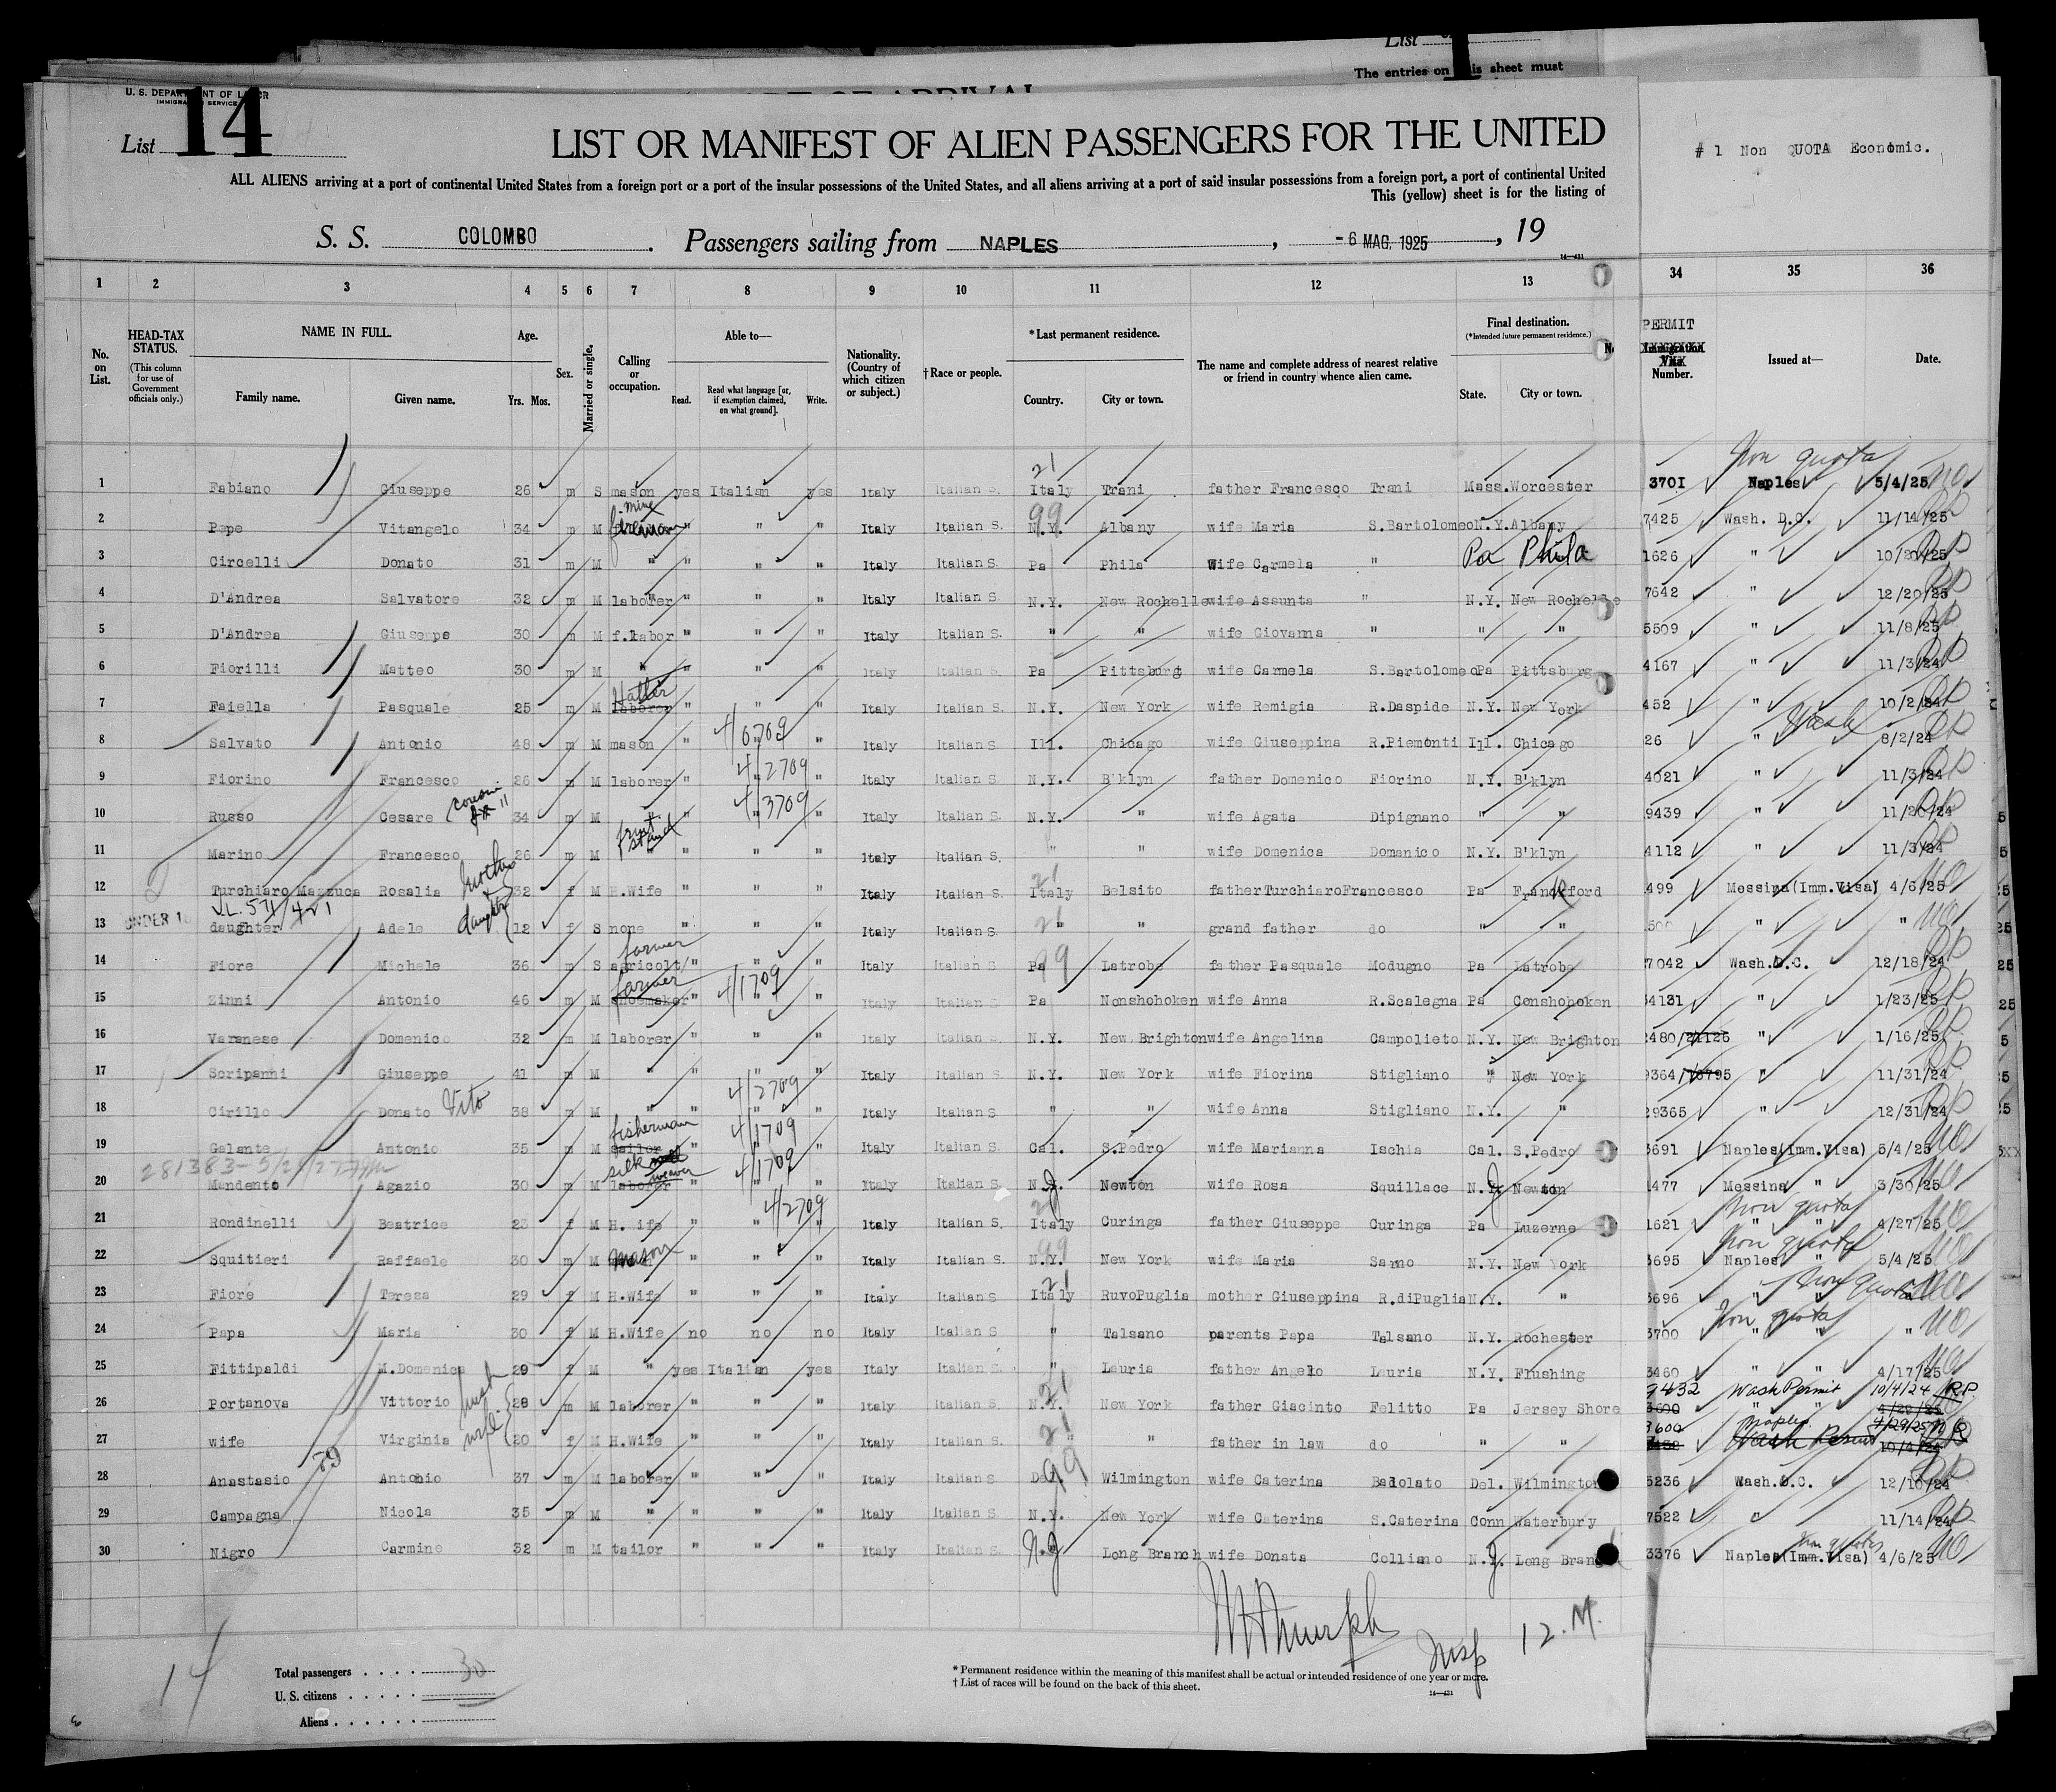 List
The entries on this sheet must
U. S. DEPARTMENT OF LABOR
IMMIGRATION SERVICE
List 14
LIST OR MANIFEST OF ALIEN PASSENGERS FOR THE UNITED
# 1 Non QUOTA Economic.
ALL ALIENS arriving at a port of continental United States from a foreign port or a port of the insular possessions of the United States, and all aliens arriving at a port of said insular possessions from a foreign port, a port of continental United
This (yellow) sheet is for the listing of
S. S. COLOMBO. Passengers sailing from NAPLES, -6 MAG. 1925, 19
14—431
1 2 3 4 5 6 7 8 9 10 11 12 13 34 35 36
No. on List. HEAD-TAX STATUS. (This column for use of Government officials only.) NAME IN FULL. Family name. Given name. Age. Yrs. Mos. Sex. Married or single. Calling or occupation. Able to— Read. Read what language [or, if exemption claimed, on what ground]. Write. Nationality. (Country of which citizen or subject.) †Race or people. *Last permanent residence. Country. City or town. The name and complete address of nearest relative or friend in country whence alien came. Final destination. (*Intended future permanent residence.) State. City or town. PERMIT Number. Issued at— Date.
1 Fabiano Giuseppe 26 m S mason yes Italian yes Italy Italian S. 21 Italy Trani father Francesco Trani Mass. Worcester 3701 Non quota Naples 5/4/25
2 Pepe Vitangelo 34 m M " " " Italy Italian S. 99 N.Y. Albany wife Maria S.Bartolomeo N.Y. Albany 7425 Wash. D.C. 11/14/25
3 Circelli Donato 31 m M " " " " Italy Italian S. Pa Phila Wife Carmela " Pa Phila 1626 " 10/20/25
4 D'Andrea Salvatore 32 m M laborer " " " Italy Italian S. N.Y. New Rochelle wife Assunta " N.Y. New Rochelle 7642 " 12/20/25
5 D'Andrea Giuseppe 30 m M f.labor " " " Italy Italian S. " " wife Giovanna " " " 5509 " 11/8/25
6 Fiorilli Matteo 30 m M " " " " Italy Italian S. Pa Pittsburg wife Carmela S.Bartolomeo Pa Pittsburg 4167 " 11/3/24
7 Faiella Pasquale 25 m M Hatter laborer " " " Italy Italian S. N.Y. New York wife Remigia R.Daspide N.Y. New York 452 " 10/2/24
8 Salvato Antonio 48 m M mason " 4/0709 " " Italy Italian S. Ill. Chicago wife Giuseppina R.Piemonti Ill. Chicago 26 " Wash 8/2/24
9 Fiorino Francesco 26 m M laborer " 4/2709 " Italy Italian S. N.Y. B'klyn father Domenico Fiorino N.Y. B'klyn 4021 " 11/3/24
10 Russo Cesare 34 m M " 4/3709 " Italy Italian S. N.Y. " wife Agata Dipignano " " 9439 " 11/20/24
11 Marino Francesco 26 m M fruit stand " " " " Italy Italian S. " " wife Domenica Domanico N.Y. B'klyn 4112 " 11/3/24
12 Turchiaro Mazzuca Rosalia mother & 32 f M H.Wife " " " Italy Italian S. 21 Italy Belsito father Turchiaro Francesco Pa Frankford 499 Messina (Imm.Visa) 4/6/25
13 UNDER daughter Adele daughter 12 f S none " " " Italy Italian S. 21 " " grand father do " " " "
14 Fiore Michele 36 m S farmer agricolt " " " Italy Italian S. 99 Pa Latrobe father Pasquale Modugno Pa Latrobe 7042 Wash.D.C. 12/18/24
15 Zinni Antonio 46 m M farmer shoemaker " 4/1709 " " Italy Italian S. Pa Nonshohoken wife Anna R.Scalegna Pa Conshohoken 34131 " 1/23/25
16 Varanese Domenico 32 m M laborer " " " Italy Italian S. N.Y. New Brighton wife Angelina Campolieto N.Y. New Brighton 2480/ " 1/16/25
17 Scripanni Giuseppe 41 m M " " " " Italy Italian S. N.Y. New York wife Fiorina Stigliano " New York 9364/ " 11/31/24
18 Cirillo Donato Vito 38 m M " " 4/2709 " " Italy Italian S. " " wife Anna Stigliano N.Y. " 29365 " 12/31/24
19 Galante Antonio 35 m M fisherman sailor " 4/1709 " " Italy Italian S. Cal. S.Pedro wife Marianna Ischia Cal. S.Pedro 3691 Naples(Imm.Visa) 5/4/25
20 Mandento Agazio 30 m M silk weaver laborer " 4/1709 " " Italy Italian S. N.J. Newton wife Rosa Squillace N.J. Newton 1477 Messina " 3/30/25
21 Rondinelli Beatrice 23 f M H. ife " 4/2709 " " Italy Italian S. Italy Curinga father Giuseppe Curinga Pa Luzerne 1621 Non quota " " 4/27/25
22 Squitieri Raffaele 30 m M mason " " " Italy Italian S. 99 N.Y. New York wife Maria Sarno N.Y. New York 3695 Non quota Naples " 5/4/25
23 Fiore Tereza 29 f M H.Wife " " " Italy Italian S. 21 Italy RuvoPuglia mother Giuseppina R.diPuglia N.Y. " 3696 " " Non quota
24 Papa Maria 30 f M H.Wife no no no Italy Italian S " Talsano parents Papa Talsano N.Y. Rochester 3700 Non quota " " "
25 Fittipaldi M.Domenica 29 f M " yes Italian yes Italy Italian S. " Lauria father Angelo Lauria N.Y. Flushing 3460 " " 4/17/25
26 Portanova Vittorio husb 28 m M laborer " " " Italy Italian S. 21 N.Y. New York father Giacinto Felitto Pa Jersey Shore 9432 Wash Permit 10/4/24 R.P.
27 wife Virginia wife 20 f M H.Wife " " " Italy Italian S. 21 " " father in law do " " 3600 Naples 4/29/25
28 Anastasio Antonio 37 m M laborer " " " Italy Italian S. 99 Del. Wilmington wife Caterina Badolato Del. Wilmington 5236 Wash.D.C. 12/10/24
29 Campagna Nicola 35 m M " " " " Italy Italian S. N.Y. New York wife Caterina S.Caterina Conn Waterbury 7522 " 11/14/24
30 Nigro Carmine 32 m M tailor " " " Italy Italian S. N.J Long Branch wife Donata Colliano N.J. Long Branch 3376 Naples(Imm.Visa) Non quota 4/6/25
Insp 12. M.
14
Total passengers . . . . . 30
U. S. citizens . . . . .
Aliens . . . . . .
* Permanent residence within the meaning of this manifest shall be actual or intended residence of one year or more.
† List of races will be found on the back of this sheet.
14—431